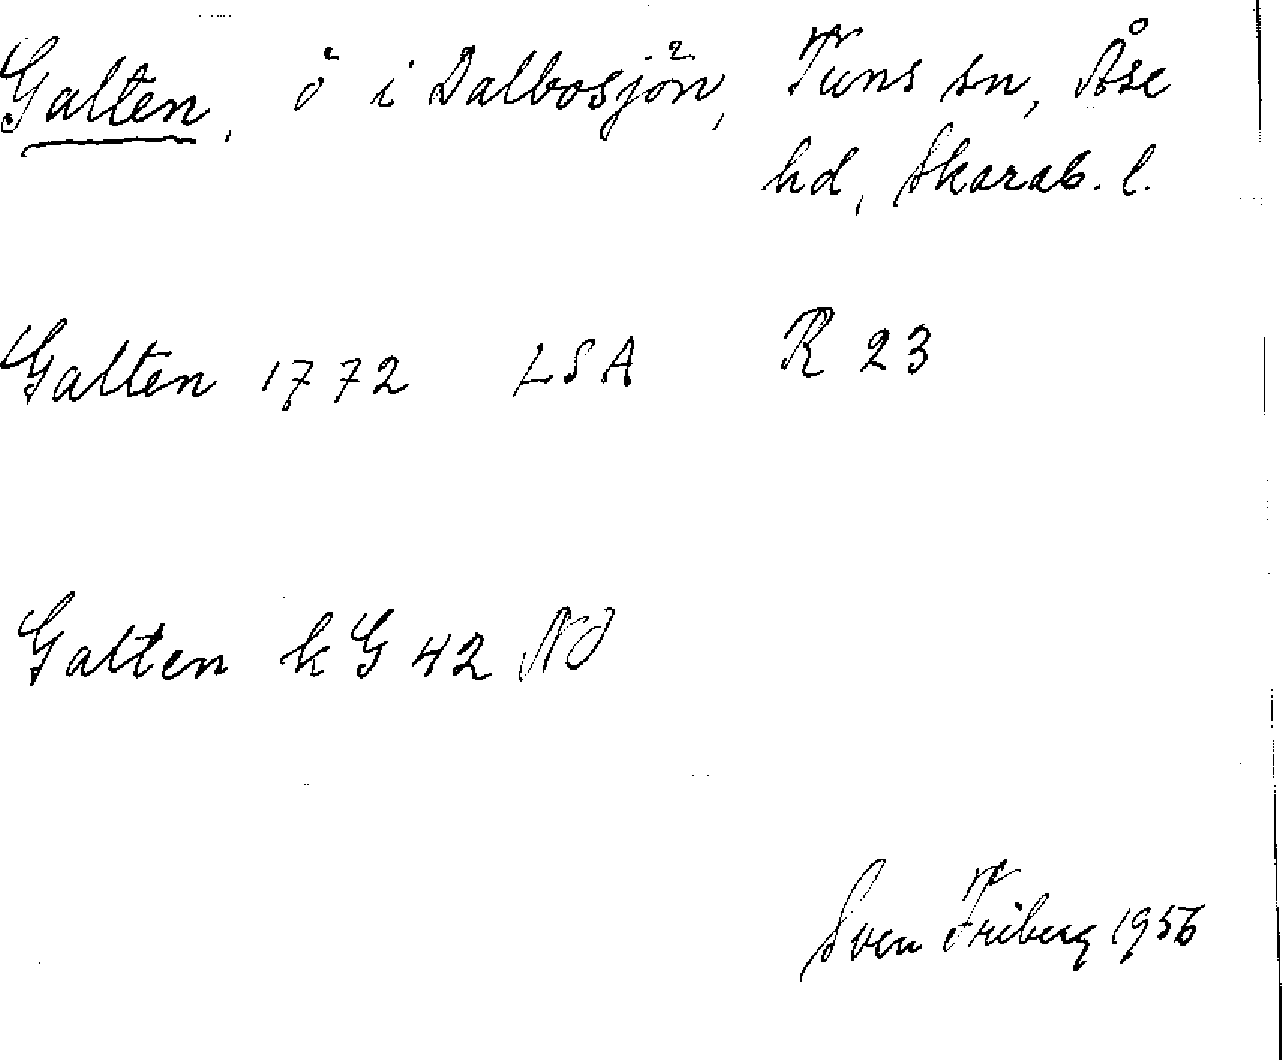 Galten, ö i Dalbosjön, Tuns sn, Åse
hd, Skarab. l.
Galten 1772 LSA R 23
Galten kG 42 NO
Sven Friberg 1956